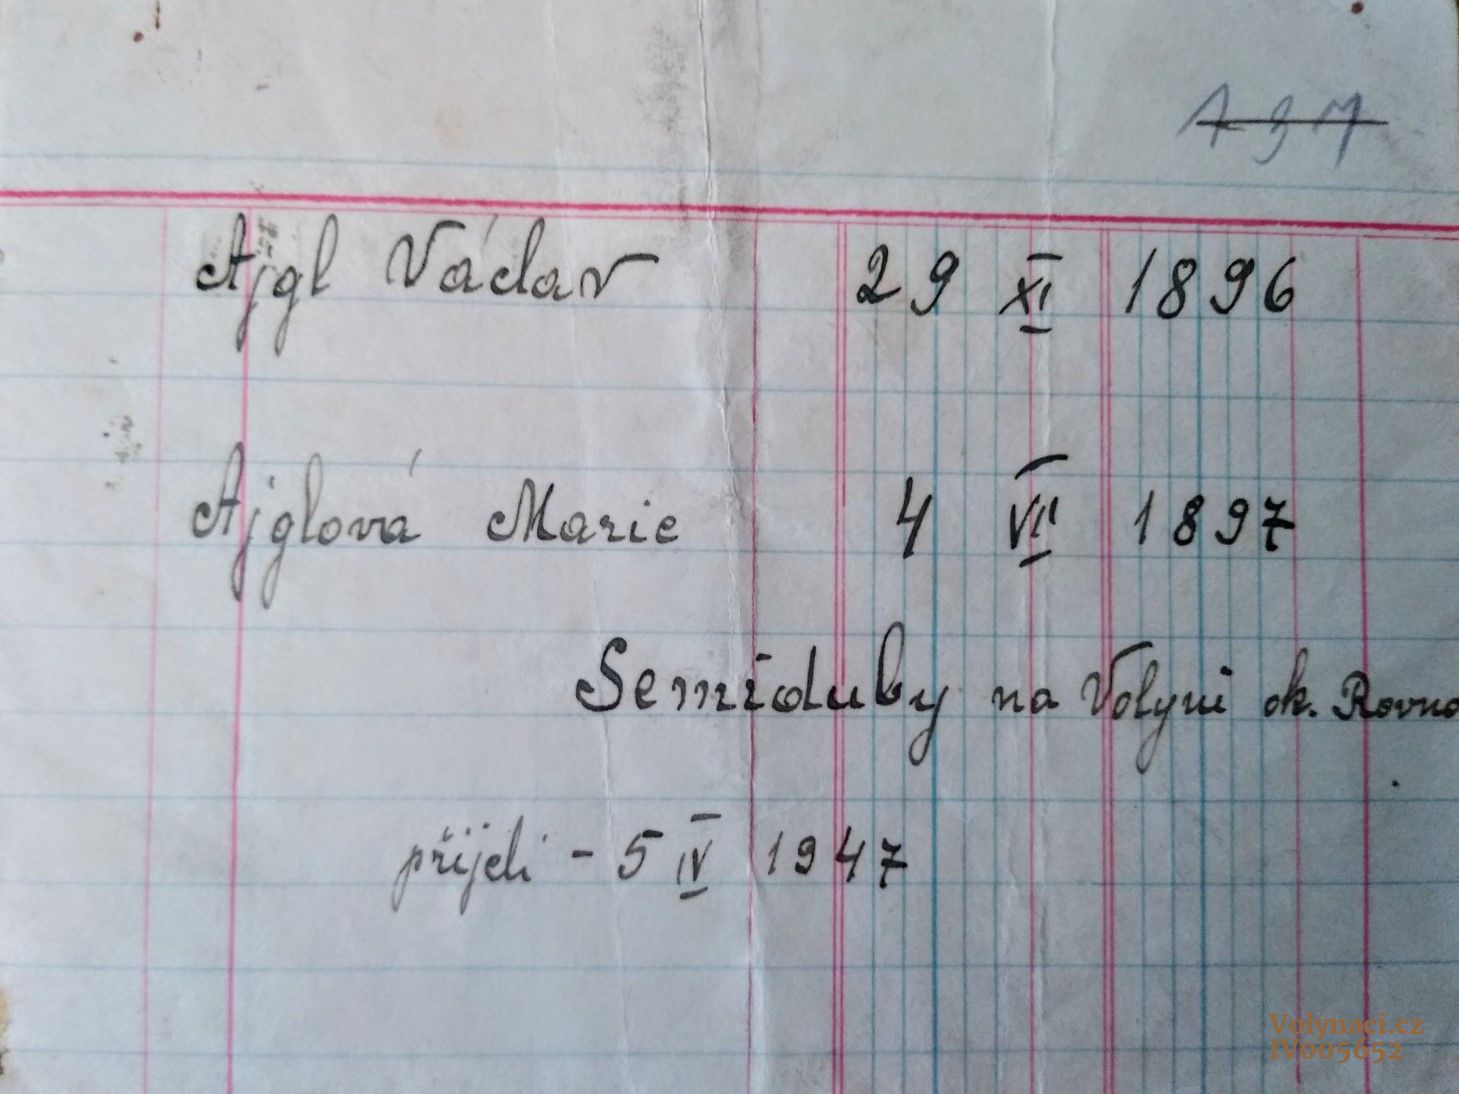 Ajgl Václav 29 XI 1896
Ajglová Marie 4 VII 1897
Semiduby na Volyni ok. Rovno
přijeli - 5 IV 1947
Volynaci.cz
IV005652